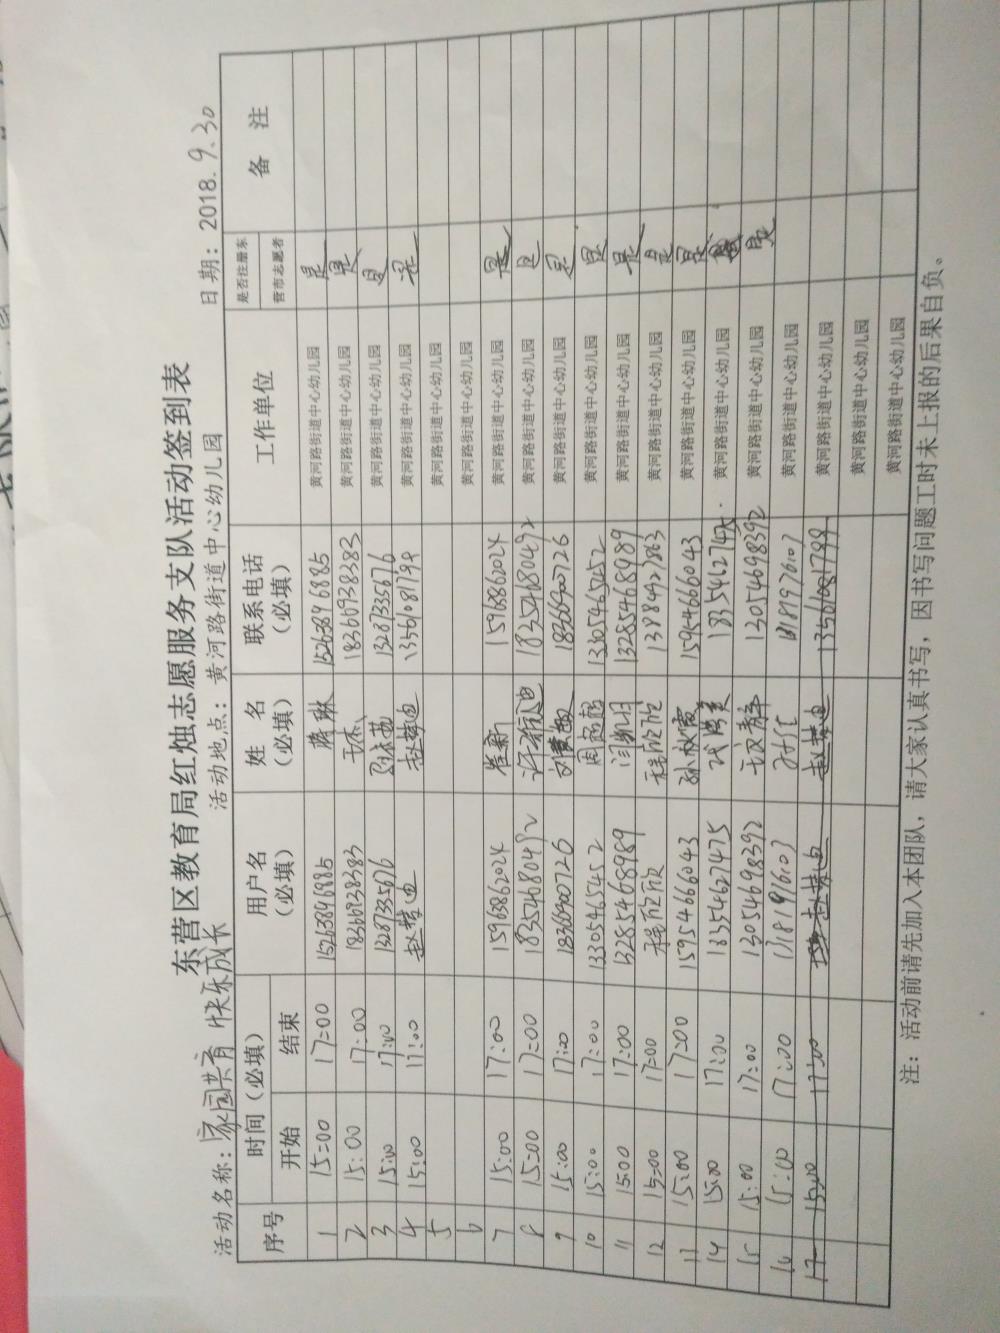 东营区教育局红烛志愿服务支队活动签到表
活动名称：家园共育 快乐成长 活动地点：黄河路街道中心幼儿园 日期：2018.9.30
序号 时间（必填） 用户名（必填） 姓 名（必填） 联系电话（必填） 工作单位 是否注册东营市志愿者 备 注
开始 结束
1 15:00 17:00 15263896885 蒋琳 15263896885 黄河路街道中心幼儿园 是
2 15:00 17:00 18366938383 18366938383 黄河路街道中心幼儿园 是
3 15:00 17:00 13287335676 13287335676 黄河路街道中心幼儿园 是
4 15:00 17:00 赵梦迪 赵梦迪 13561081799 黄河路街道中心幼儿园 是
5 黄河路街道中心幼儿园
6 黄河路街道中心幼儿园
7 15:00 17:00 15963862024 崔新 黄河路街道中心幼儿园 是
8 15:00 17:00 18354680492 18354680492 黄河路街道中心幼儿园 是
9 15:00 17:00 18366900726 黄河路街道中心幼儿园 是
10 15:00 17:00 13305465452 周超超 13305465452 黄河路街道中心幼儿园 是
11 15:00 17:00 13285468989 13285468989 黄河路街道中心幼儿园 是
12 15:00 17:00 程欣欣 程欣欣 13884927863 黄河路街道中心幼儿园 是
13 15:00 17:00 15954666043 15954666043 黄河路街道中心幼儿园 是
14 15:00 17:00 18354627475 黄河路街道中心幼儿园 是
15 15:00 17:00 13054698392 13054698392 黄河路街道中心幼儿园 是
16 15:00 17:00 黄河路街道中心幼儿园
17 15:00 17:00 赵梦迪 赵梦迪 13561081799 黄河路街道中心幼儿园
黄河路街道中心幼儿园
黄河路街道中心幼儿园
注：活动前请先加入本团队，请大家认真书写，因书写问题工时未上报的后果自负。